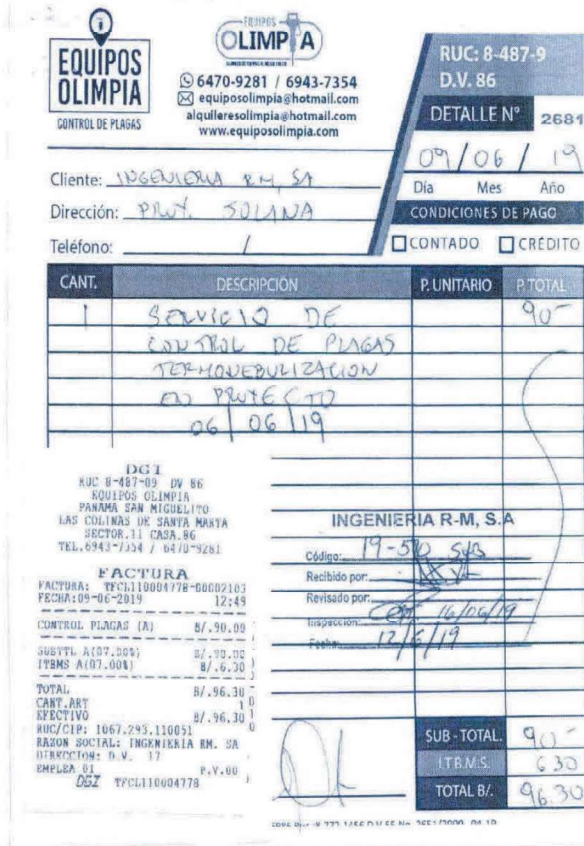 EQUIPOS
OLIMPIA
CONTROL DE PLAGAS
EQUIPOS
OLIMPIA
6470-9281 / 6943-7354
equiposolimpia@hotmail.com
alquileresolimpia@hotmail.com
www.equiposolimpia.com
RUC: 8-487-9
D.V. 86
DETALLE N° 2681
09/06/19
Día Mes Año
Cliente: INGENIERIA RM, SA
Dirección: PROY. SOLANA
Teléfono: /
CONDICIONES DE PAGO
CONTADO CRÉDITO
CANT. DESCRIPCIÓN P. UNITARIO P. TOTAL
1 SERVICIO DE 90-
CONTROL DE PLAGAS
TERMONEBULIZACION
EN PROYECTO
06/06/19
DGI
RUC 8-487-09 DV 86
EQUIPOS OLIMPIA
PANAMA SAN MIGUELITO
LAS COLINAS DE SANTA MARTA
SECTOR.11 CASA.86
TEL.6943-7354 / 6470-9281
FACTURA
FACTURA: TFCL110004778-00002103
FECHA:09-06-2019 12:49
CONTROL PLAGAS (A) B/.90.00
SUBTTL A(07.00%) B/.90.00
ITBMS A(07.00%) B/.6.30
TOTAL B/.96.30
CANT.ART 1
EFECTIVO B/.96.30
RUC/CIP: 1067.293.110051
RAZON SOCIAL: INGENIERIA RM. SA
DIRECCION: D.V. 17
EMPLEA 01 P.V.00
DGI TFCL110004778
INGENIERIA R-M, S.A
Código: 19-50
Recibido por:
Revisado por:
Inspección: 16/06/19
Fecha: 12/6/19
SUB-TOTAL. 90-
I.T.B.M.S. 6.30
TOTAL B/. 96.30